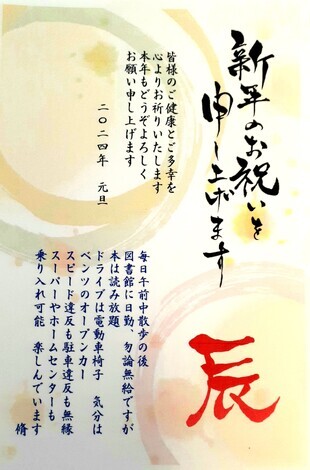 新年のお祝いを
申し上げます
辰
皆様のご健康とご多幸を
心よりお祈りいたします
本年もどうぞよろしく
お願い申し上げます
二〇二四年 元旦
毎日午前中散歩の後
図書館に日勤、勿論無給ですが
本は読み放題
ドライブは電動車椅子 気分は
ベンツのオープンカー
スピード違反も駐車違反も無縁
スーパーやホームセンターも
乗り入れ可能 楽しんでいます
脩